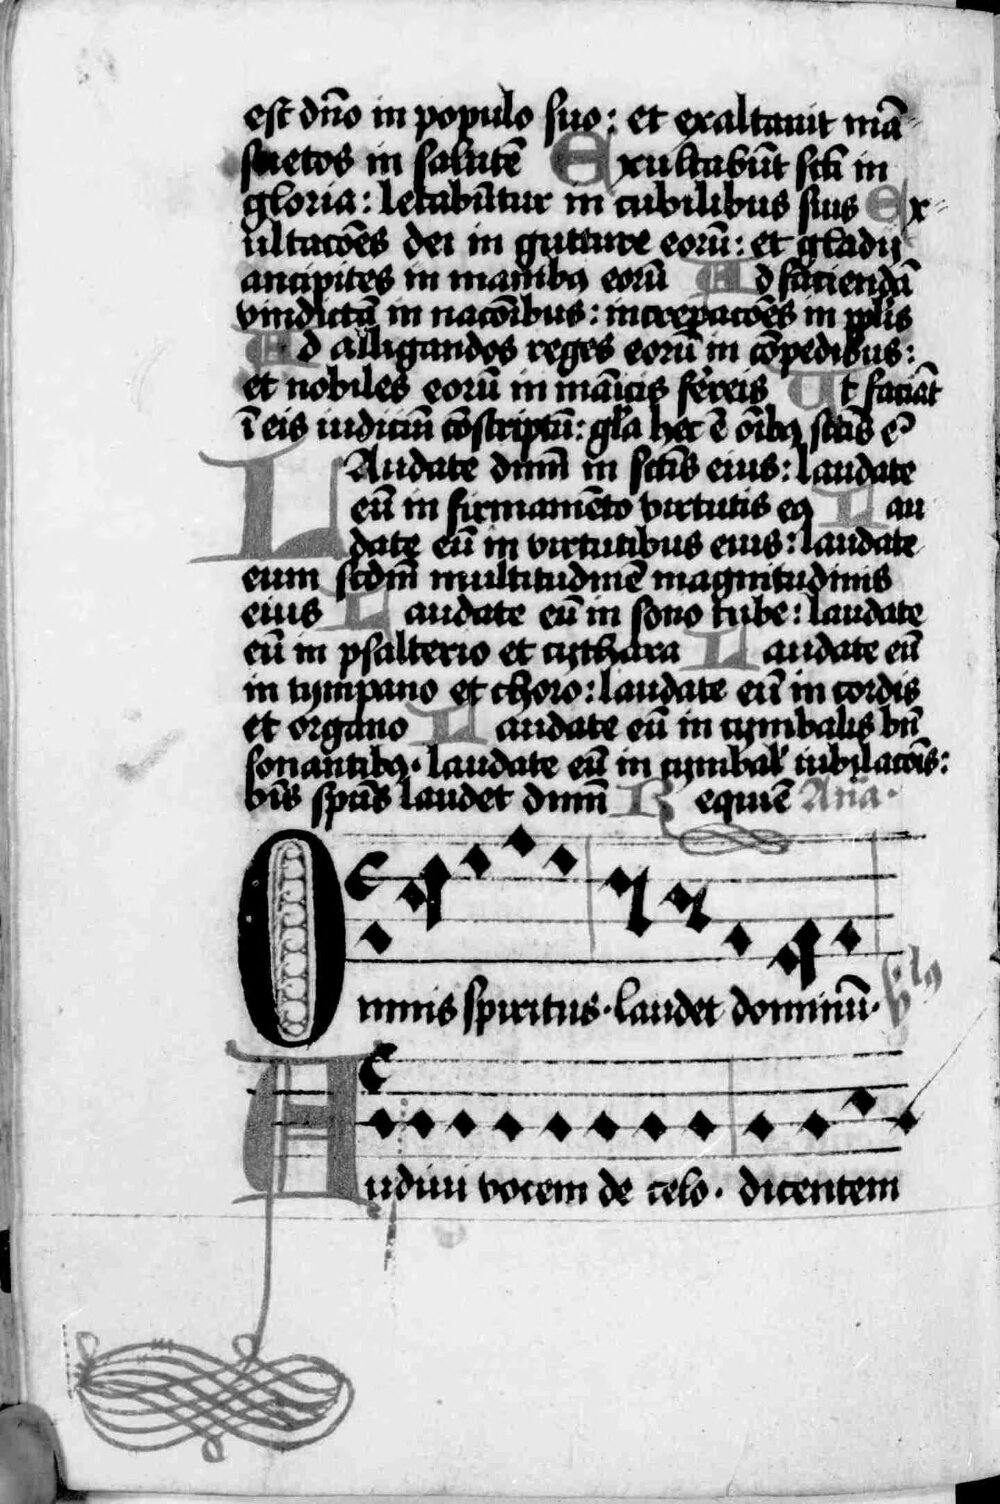 est dn̄o in populo suo: et exaltauit mā-
suetos in salutē Exultabūt sc̄i in
gloria: letabūtur in cubilibus suis Ex-
ultacōes dei in gutture eorū: et gladij
ancipites in manibꝫ eorū Ad faciendā
vindictā in nacōibus: increpacōes in pp̄lis
Ad alligandos reges eorū in cōpedibus:
et nobiles eorū in māicis ferreis Ut faciāt
ī eis iudiciū cōscriptū: gl̄a hec ē oībꝫ sc̄tis eꝰ
LAudate dnm̄ in sc̄tis eius: laudate
eū in firmamēto virtutis eꝰ Lau
date eū in virtutibus eius: laudate
eum scdm̄ multitudinē magnitudinis
eius Laudate eū in sono tube: laudate
eū in psalterio et cythara Laudate eū
in tympano et choro: laudate eū in cordis
et organo Laudate eū in cymbalis bn̄
sonantibꝫ. laudate eū in cymbal' iubilacōis:
om̄is spūs laudet dnm̄ Requiē An̄a.
Omnis spiritus. laudet dominū.
Audiui vocem de celo. dicentem